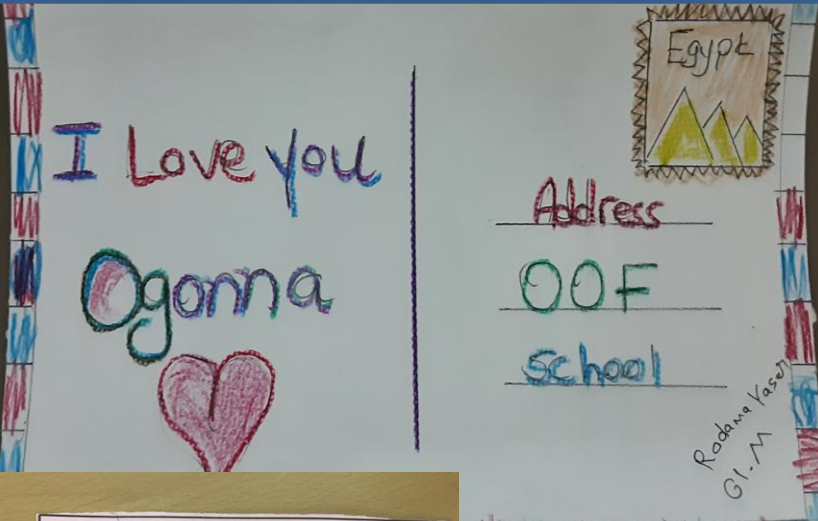 I Love you
Ogonna
Egypt
Address
OOF
school
Rodama Yaser
G1.M